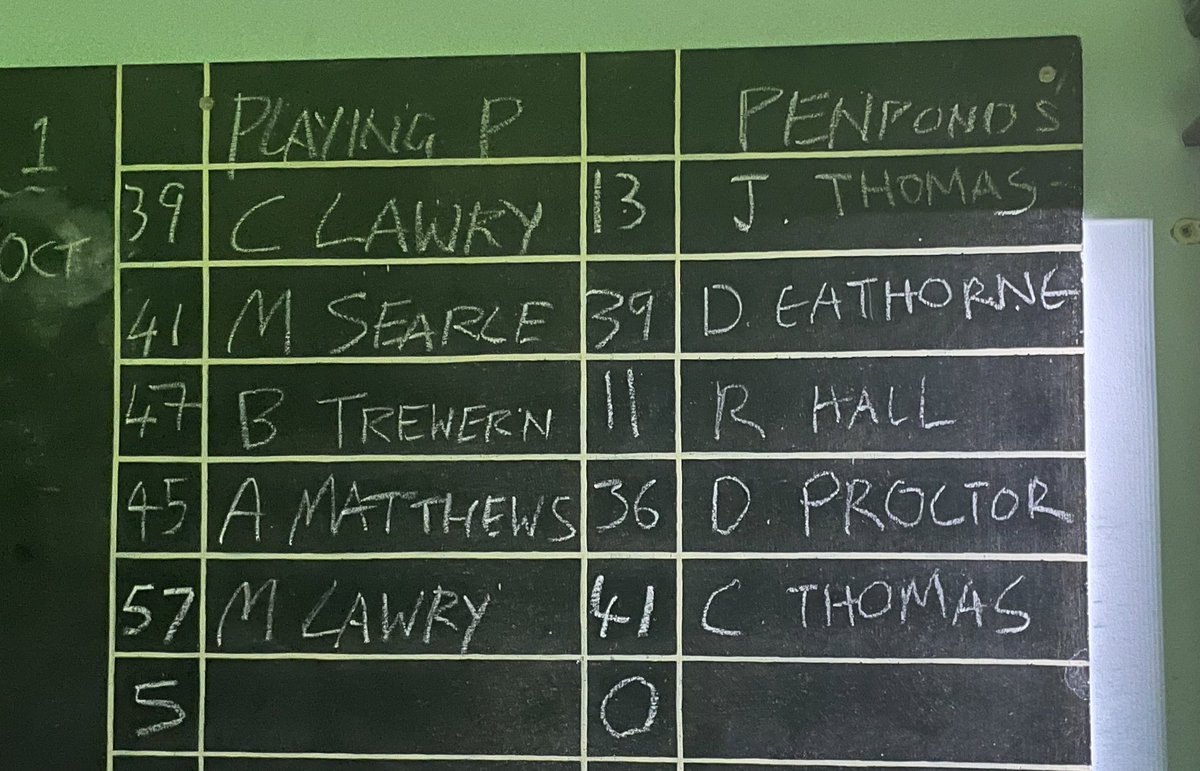 PLAYING P PENPONDS
1 39 C LAWKY 13 J. THOMAS
OCT 41 M SEARLE 39 D. EATHORNE
47 B TREWERN 11 R HALL
45 A MATTHEWS 36 D. PROCTOR
57 M LAWRY 41 C. THOMAS
5 0